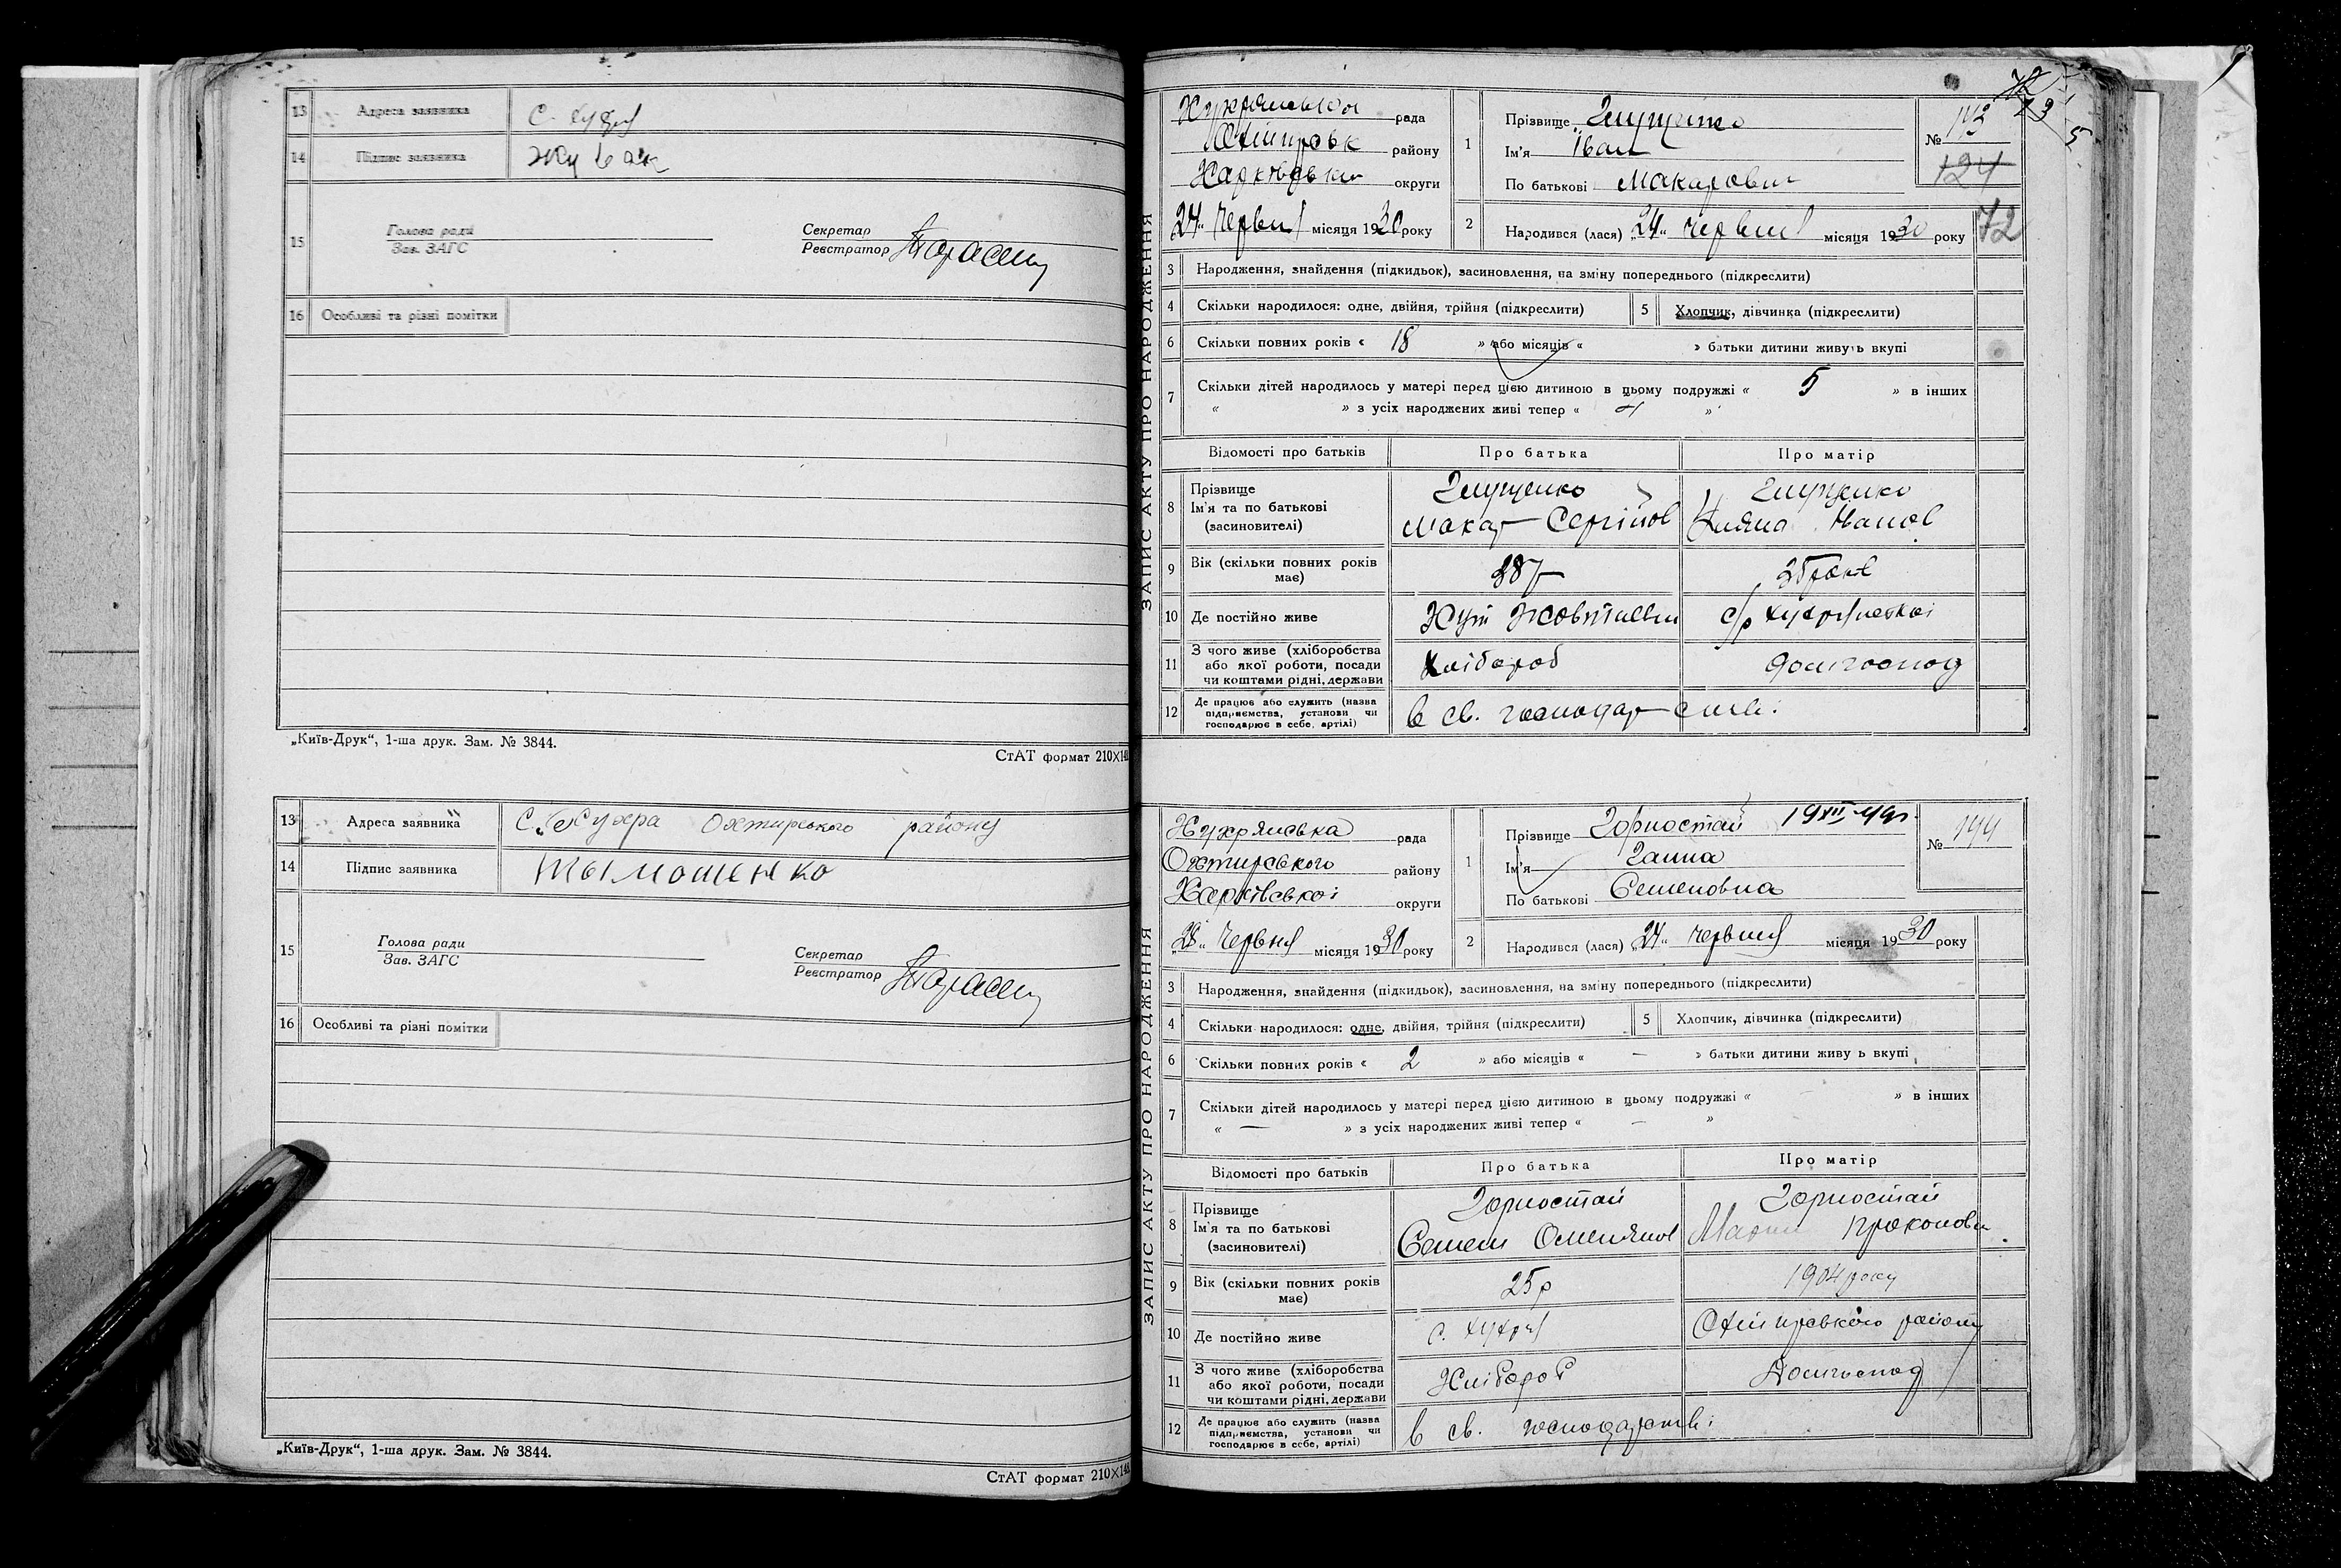 13 Адреса заявника С. Хухря
14 Підпис заявника
15 Голова ради
Зав. ЗАГС
Секретар
Реєстратор
16 Особливі та різні помітки
„Київ-Друк“, 1-ша друк. Зам. № 3844.
СтАТ формат 210×148
13 Адреса заявника Охтирського району
14 Підпис заявника Тымошенко
15 Голова ради
Зав. ЗАГС
Секретар
Реєстратор
16 Особливі та різні помітки
„Київ-Друк“, 1-ша друк. Зам. № 3844.
СтАТ формат 210×148
ЗАПИС АКТУ ПРО НАРОДЖЕННЯ
Хухрянська рада
району
Харківська округи
„24“ Червня місяця 1930 року
1 Прізвище
Ім'я Іван
По батькові Макарович
№ 143
124
72
73
5
2 Народився (лася) „24“ червня місяця 1930 року
72
3 Народження, знайдення (підкидьок), засиновлення, на зміну попереднього (підкреслити)
4 Скільки народилося: одне, двійня, трійня (підкреслити)
5 Хлопчик, дівчинка (підкреслити)
6 Скільки повних років « 18 » або місяців « » батьки дитини живуть вкупі
7 Скільки дітей народилось у матері перед цією дитиною в цьому подружжі « 5 » в інших
« » з усіх народжених живі тепер « »
Відомості про батьків Про батька Про матір
8 Прізвище
Ім'я та по батькові
(засиновителі)
Макар Сергійов
Іванов
9 Вік (скільки повних років має) 38 р
10 Де постійно живе Хут
с/р Хухрянської
11 З чого живе (хліборобства
або якої роботи, посади
чи коштами рідні, держави
Хлібороб
Домгоспод
12 Де працює або служить (назва
підприємства, установи чи
господарює в себе, артілі)
в св. господарстві
ЗАПИС АКТУ ПРО НАРОДЖЕННЯ
Хухрянська рада
Охтирського району
Харківської округи
„28“ Червня місяця 1930 року
1 Прізвище Горностай 19 XII 49р.
Ім'я Ганна
По батькові Семеновна
№ 144
2 Народився (лася) „24“ червня місяця 1930 року
3 Народження, знайдення (підкидьок), засиновлення, на зміну попереднього (підкреслити)
4 Скільки народилося: одне, двійня, трійня (підкреслити)
5 Хлопчик, дівчинка (підкреслити)
6 Скільки повних років « 2 » або місяців « — » батьки дитини живуть вкупі
7 Скільки дітей народилось у матері перед цією дитиною в цьому подружжі « — » в інших
« — » з усіх народжених живі тепер « — »
Відомості про батьків Про батька Про матір
8 Прізвище
Ім'я та по батькові
(засиновителі)
Горностай
Семен
Горностай
Прокоповн
9 Вік (скільки повних років має) 25 р
1904 року
10 Де постійно живе с. Хухря
Охтирського району
11 З чого живе (хліборобства
або якої роботи, посади
чи коштами рідні, держави
Хлібороб
Домгоспод
12 Де працює або служить (назва
підприємства, установи чи
господарює в себе, артілі)
в св. господарстві